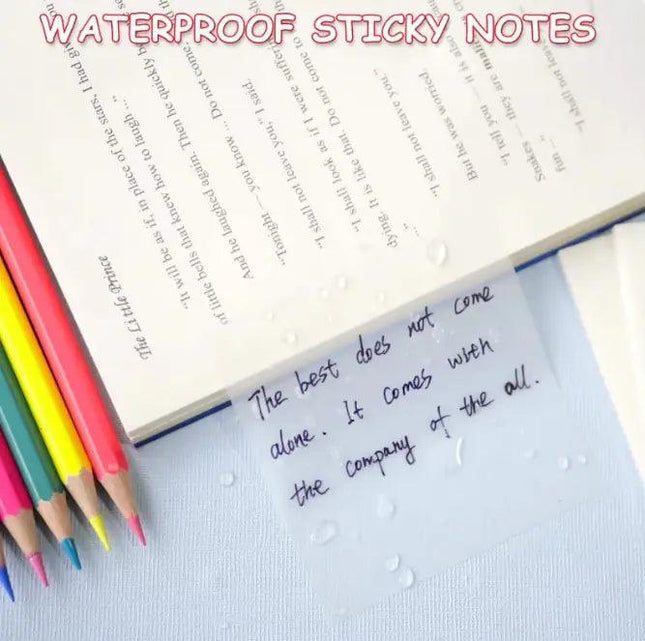 WATERPROOF STICKY NOTES
The Little Prince
"It will be as if, in place of the stars, I had given
of little bells that knew how to laugh ..."
And he laughed again. Then he quickly
"Tonight — you know ... Do not come."
"I shall not leave you," I said.
"I shall look as if I were suffering
dying. It is like that. Do not come to
..."
"I shall not leave you."
But he was worried.
"I tell you — it is also
Snakes — they are
fun ..."
"I shall not leave
The best does not come
alone. It comes with
the company of the all.